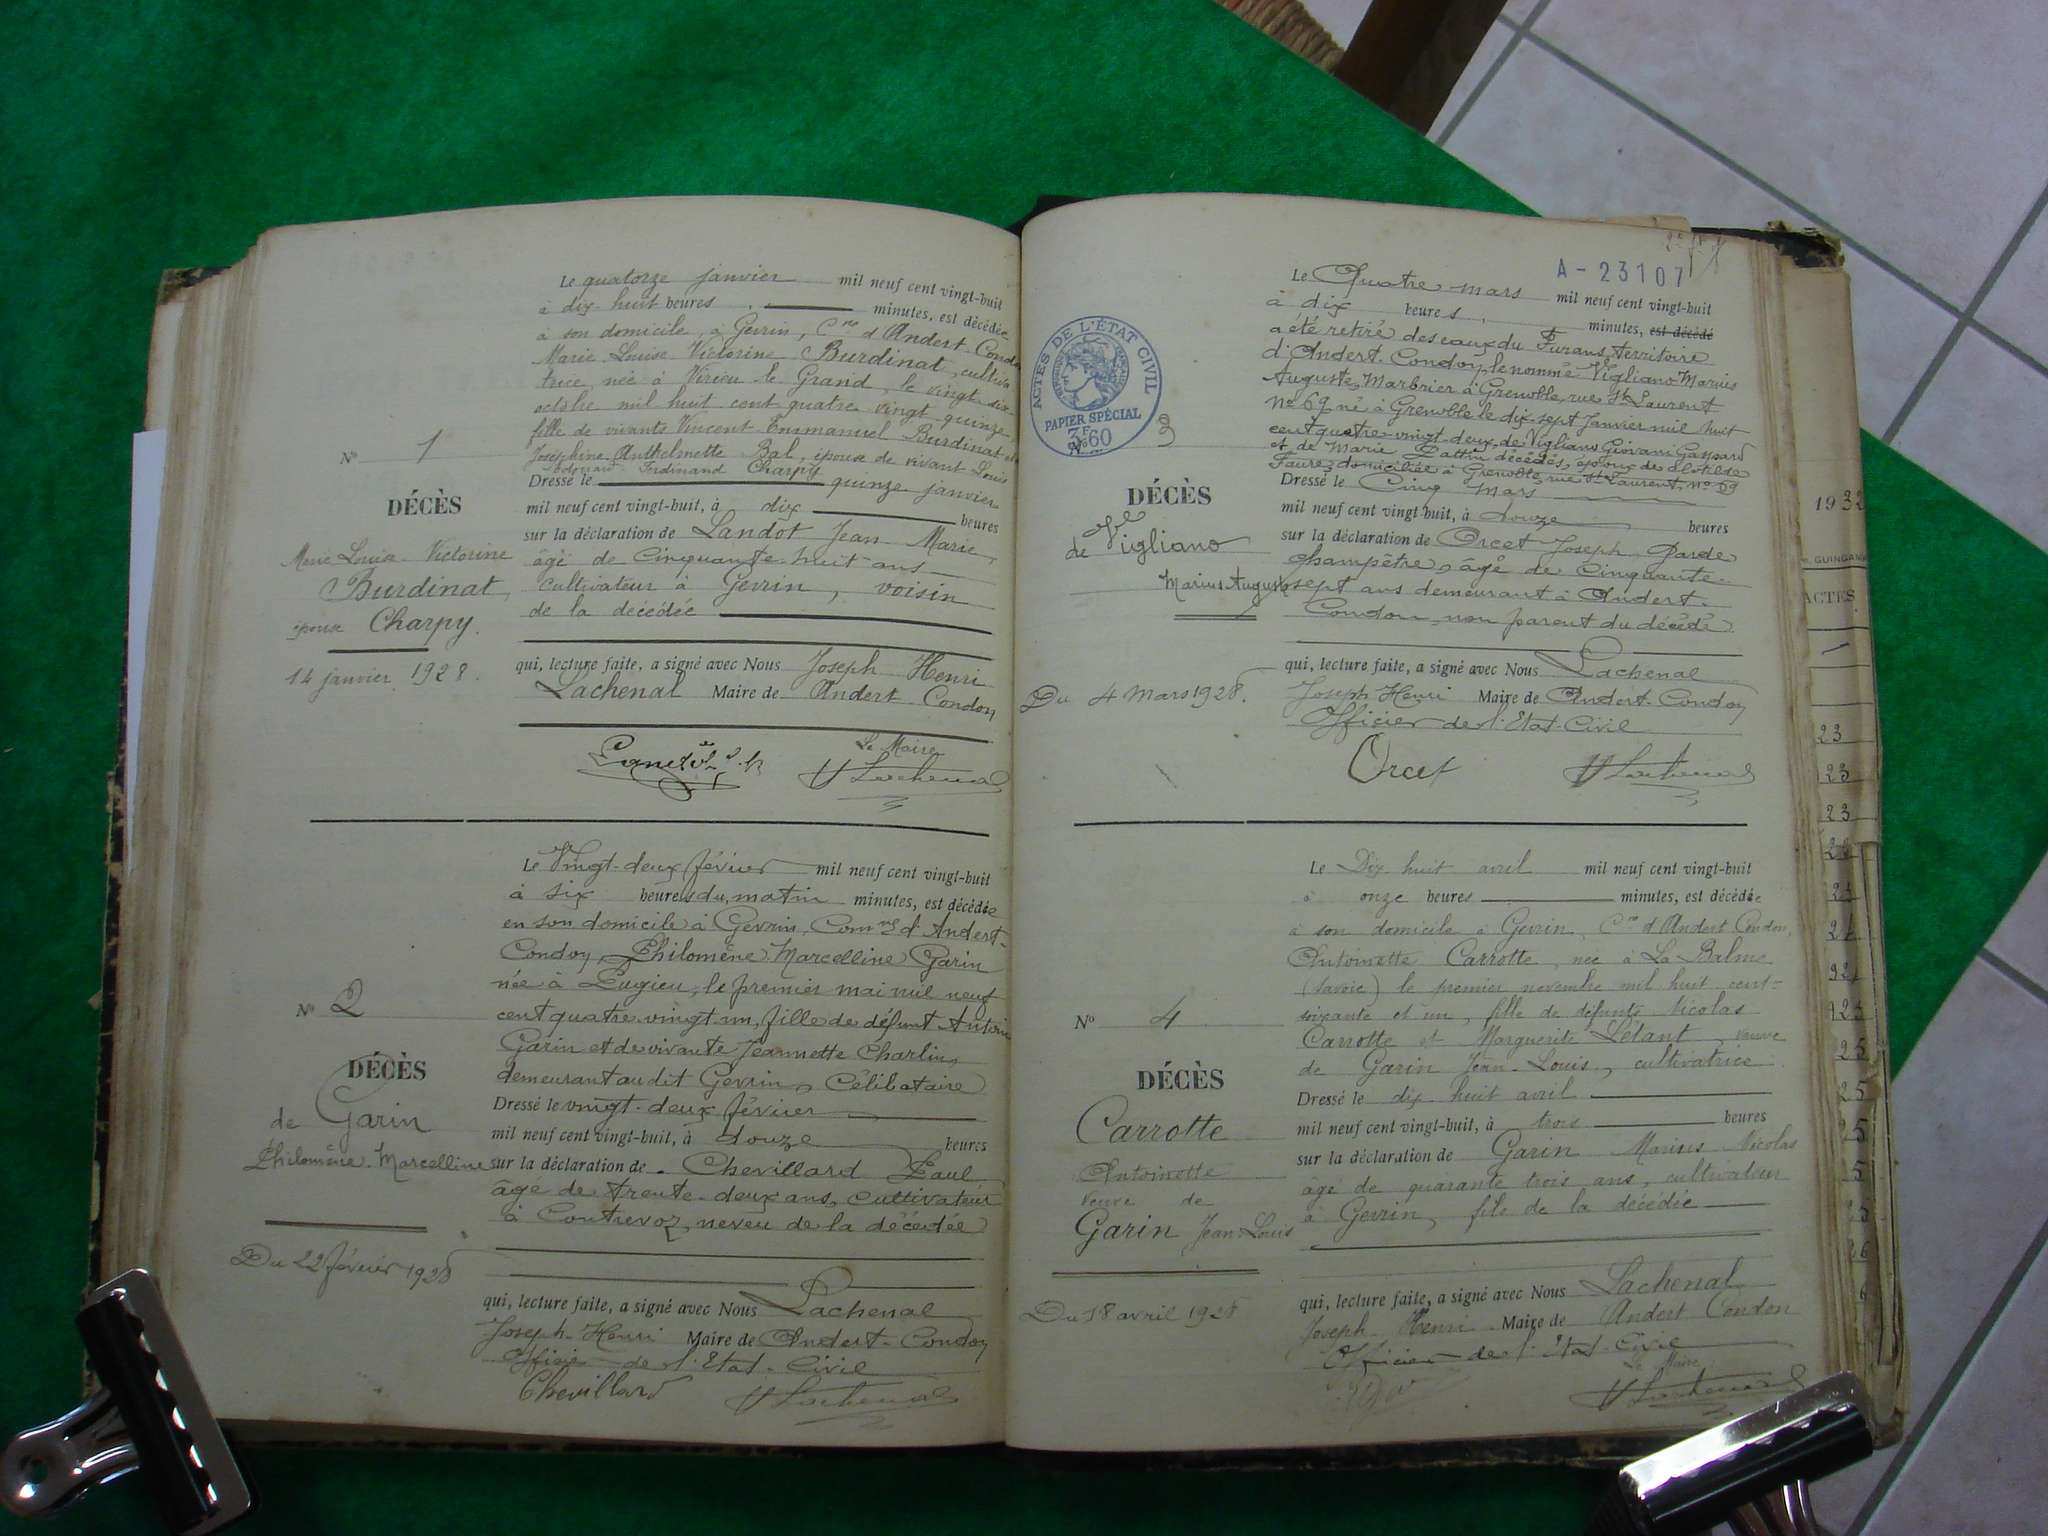 Le quatorze janvier mil neuf cent vingt-huit
à dix-huit heures minutes, est décédée
à son domicile, à Gevrin, Cne d'Andert-Condon
Marie-Louise-Victorine Burdinat, cultiva
trice, née à Virieu-le-Grand, le vingt-dix
octobre mil huit cent quatre vingt quinze,
fille de vivants Vincent Emmanuel Burdinat et
Josephine Anthelmette Bal, épouse de vivant Louis
Ferdinand Charpy
Nº 1
DÉCÈS
Marie Louise Victorine
Burdinat,
épouse Charpy.
14 janvier 1928.
Dressé le quinze janvier
mil neuf cent vingt-huit, à dix heures
sur la déclaration de Landot Jean Marie,
âgé de cinquante-huit ans
cultivateur à Gevrin, voisin
de la décédée
qui, lecture faite, a signé avec Nous Joseph Henri
Lachenal Maire de Andert-Condon
Le Maire
Lachenal
Le Vingt-deux février mil neuf cent vingt-huit
à six heures du matin minutes, est décédée
en son domicile à Gevrin, Comne d'Andert-
Condon, Philomène Marcelline Garin
née à Pugieu, le premier mai mil neuf
cent quatre-vingt un, fille de défunt Antoine
Garin et de vivante Jeannette Charlin,
demeurant audit Gevrin, Célibataire
Nº 2
DÉCÈS
de Garin
Philomène-Marcelline
Du 22 février 1928
Dressé le vingt-deux février
mil neuf cent vingt-huit, à douze heures
sur la déclaration de Chevillard Paul
âgé de trente-deux ans, cultivateur
à Contrevoz, neveu de la décédée
qui, lecture faite, a signé avec Nous Lachenal
Joseph-Henri Maire de Andert-Condon
Officier de l'Etat-Civil
Chevillard Lachenal
A-23107
ACTES DE L'ÉTAT CIVIL
PAPIER SPÉCIAL
3F60
Le Quatre mars mil neuf cent vingt-huit
à dix heures, minutes, est décédé
a été retiré des eaux du Furans, territoire
d'Andert-Condon, le nommé Vigliano Marius
Auguste, Marbrier à Grenoble, rue St Laurent
Nº 69, né à Grenoble le dix-sept Janvier mil huit
cent quatre-vingt-deux de Vigliano Giovani Gaspard
et de Marie Pattin décédés, époux de Clotilde
Faure, domiciliée à Grenoble, rue St Laurent, nº 69
Nº 3
DÉCÈS
de Vigliano
Marius Auguste
Du 4 Mars 1928.
Dressé le Cinq mars
mil neuf cent vingt-huit, à douze heures
sur la déclaration de Orcet Joseph, Garde
champêtre, âgé de Cinquante-
sept ans demeurant à Andert-
Condon, non parent du décédé
qui, lecture faite, a signé avec Nous Lachenal
Joseph-Henri Maire de Andert-Condon
Officier de l'Etat-Civil
Orcet Lachenal
Le Dix-huit avril mil neuf cent vingt-huit
à onze heures minutes, est décédée
à son domicile à Gevrin, Cne d'Andert Condon,
Antoinette Carrotte, née à La Balme
(Savoie) le premier novembre mil huit cent-
soixante et un, fille de défunts Nicolas
Carrotte et Marguerite Létant, veuve
de Garin Jean-Louis, cultivatrice
Nº 4
DÉCÈS
Carrotte
Antoinette
veuve de
Garin Jean-Louis
Du 18 avril 1928
Dressé le dix huit avril
mil neuf cent vingt-huit, à trois heures
sur la déclaration de Garin Marius Nicolas
âgé de quarante trois ans, cultivateur
à Gevrin, fils de la décédée
qui, lecture faite, a signé avec Nous Lachenal
Joseph-Henri Maire de Andert Condon
Officier de l'Etat-Civil
Le Maire
Lachenal
1932
GUINGAMP
ACTES
23
23
23